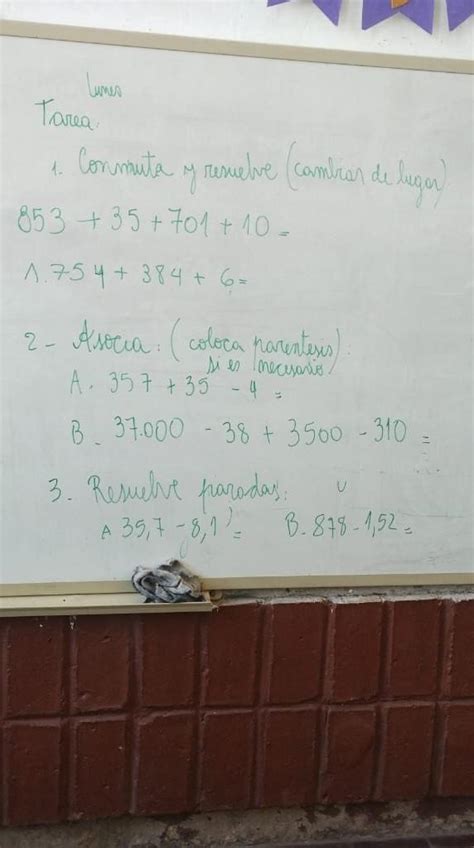 Lunes
Tarea:
1. Conmuta y resuelve (cambiar de lugar)
853 + 35 + 701 + 10 =
1.754 + 384 + 6 =
2- Asocia: (coloca parentesis):
si es necesario)
A. 357 + 35 - 4 =
B- 37.000 - 38 + 3500 - 310 =
3. Resuelve paradas:
A 35,7 - 8,1 = B- 878 - 1,52 =